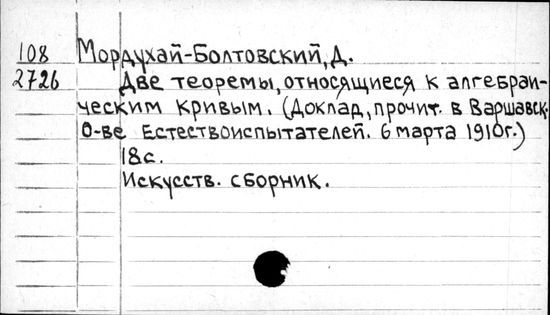 108 Мордухай-Болтовский, Д.
2726 Две теоремы, относящиеся к алгебраи-
ческим кривым. (Доклад, прочит. в Варшавск.
О-ве Естествоиспытателей. 6 марта 1910г.)
18с.
Искусств. сборник.